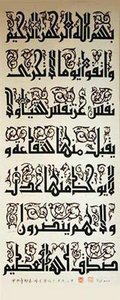 بسم الله الرحمن الرحيم
واتقوا يوما لا تجزى
نفس عن نفس شيئا ولا
يقبل منها شفاعة و
لا يؤخذ منها عدل
ولا هم ينصرون
صدق الله العظيم